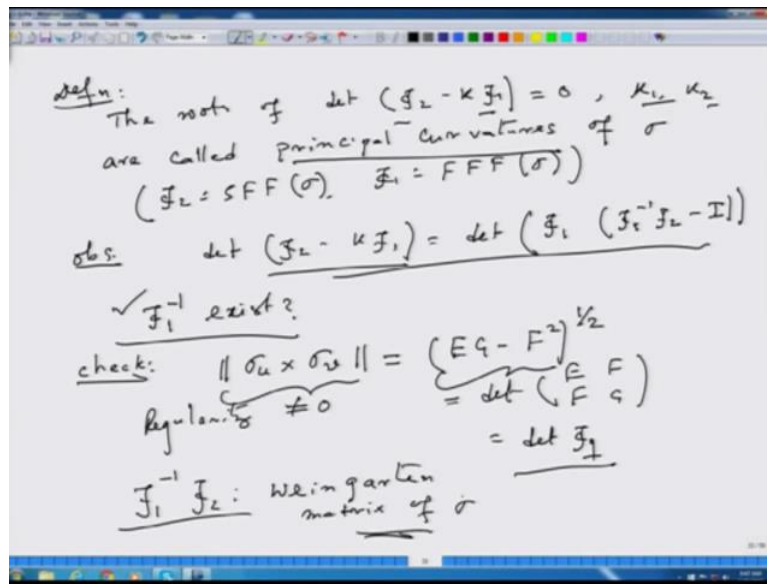 Defn:
The roots of det (𝓕₂ - κ 𝓕₁) = 0 , κ₁, κ₂
are called principal curvatures of σ
(𝓕₂ = SFF (σ). 𝓕₁ = FFF (σ))
obs. det (𝓕₂ - κ 𝓕₁) = det (𝓕₁ (𝓕₁⁻¹ 𝓕₂ - I))
✓ 𝓕₁⁻¹ exist?
check: || σᵤ × σᵥ || = (EG - F²)^½
Regularity ≠ 0
= det (E F
F G)
= det 𝓕₁
𝓕₁⁻¹ 𝓕₂ : Weingarten
matrix of σ